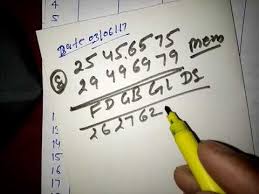 Date 03/06/17
25 45 65 75
29 49 69 79
FD GB GL DS
26 27 62
4
5
11
12
13
14
15
16
17